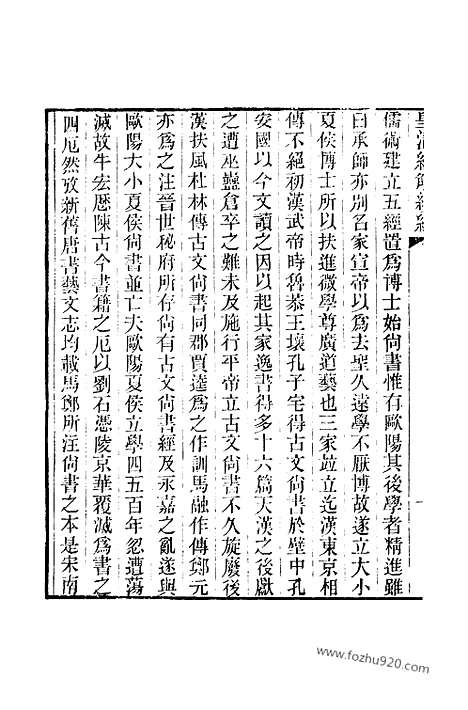 皇清經解續編
儒術建立五經置爲博士始尙書惟有歐陽其後學者精進雖
曰承師亦別名家宣帝以爲去聖久遠學不厭博故遂立大小
夏侯博士所以扶進微學尊廣道藝也三家竝立迄漢東京相
傳不絕初漢武帝時魯恭王壞孔子宅得古文尙書於壁中孔
安國以今文讀之因以起其家逸書得多十六篇天漢之後獻
之遭巫蠱倉卒之難未及施行平帝立古文尙書不久旋廢後
漢扶風杜林傳古文尙書同郡賈逵爲之作訓馬融作傳鄭元
亦爲之注晉世秘府所存尙有古文尙書經及永嘉之亂遂與
歐陽大小夏侯尙書並亡夫歐陽夏侯立學四五百年忽遭蕩
滅故牛宏歷陳古今書籍之厄以劉石憑陵京華覆滅爲書之
四厄然攷新舊唐書藝文志均載馬鄭所注尙書之本是宋南
www.fozhu920.com